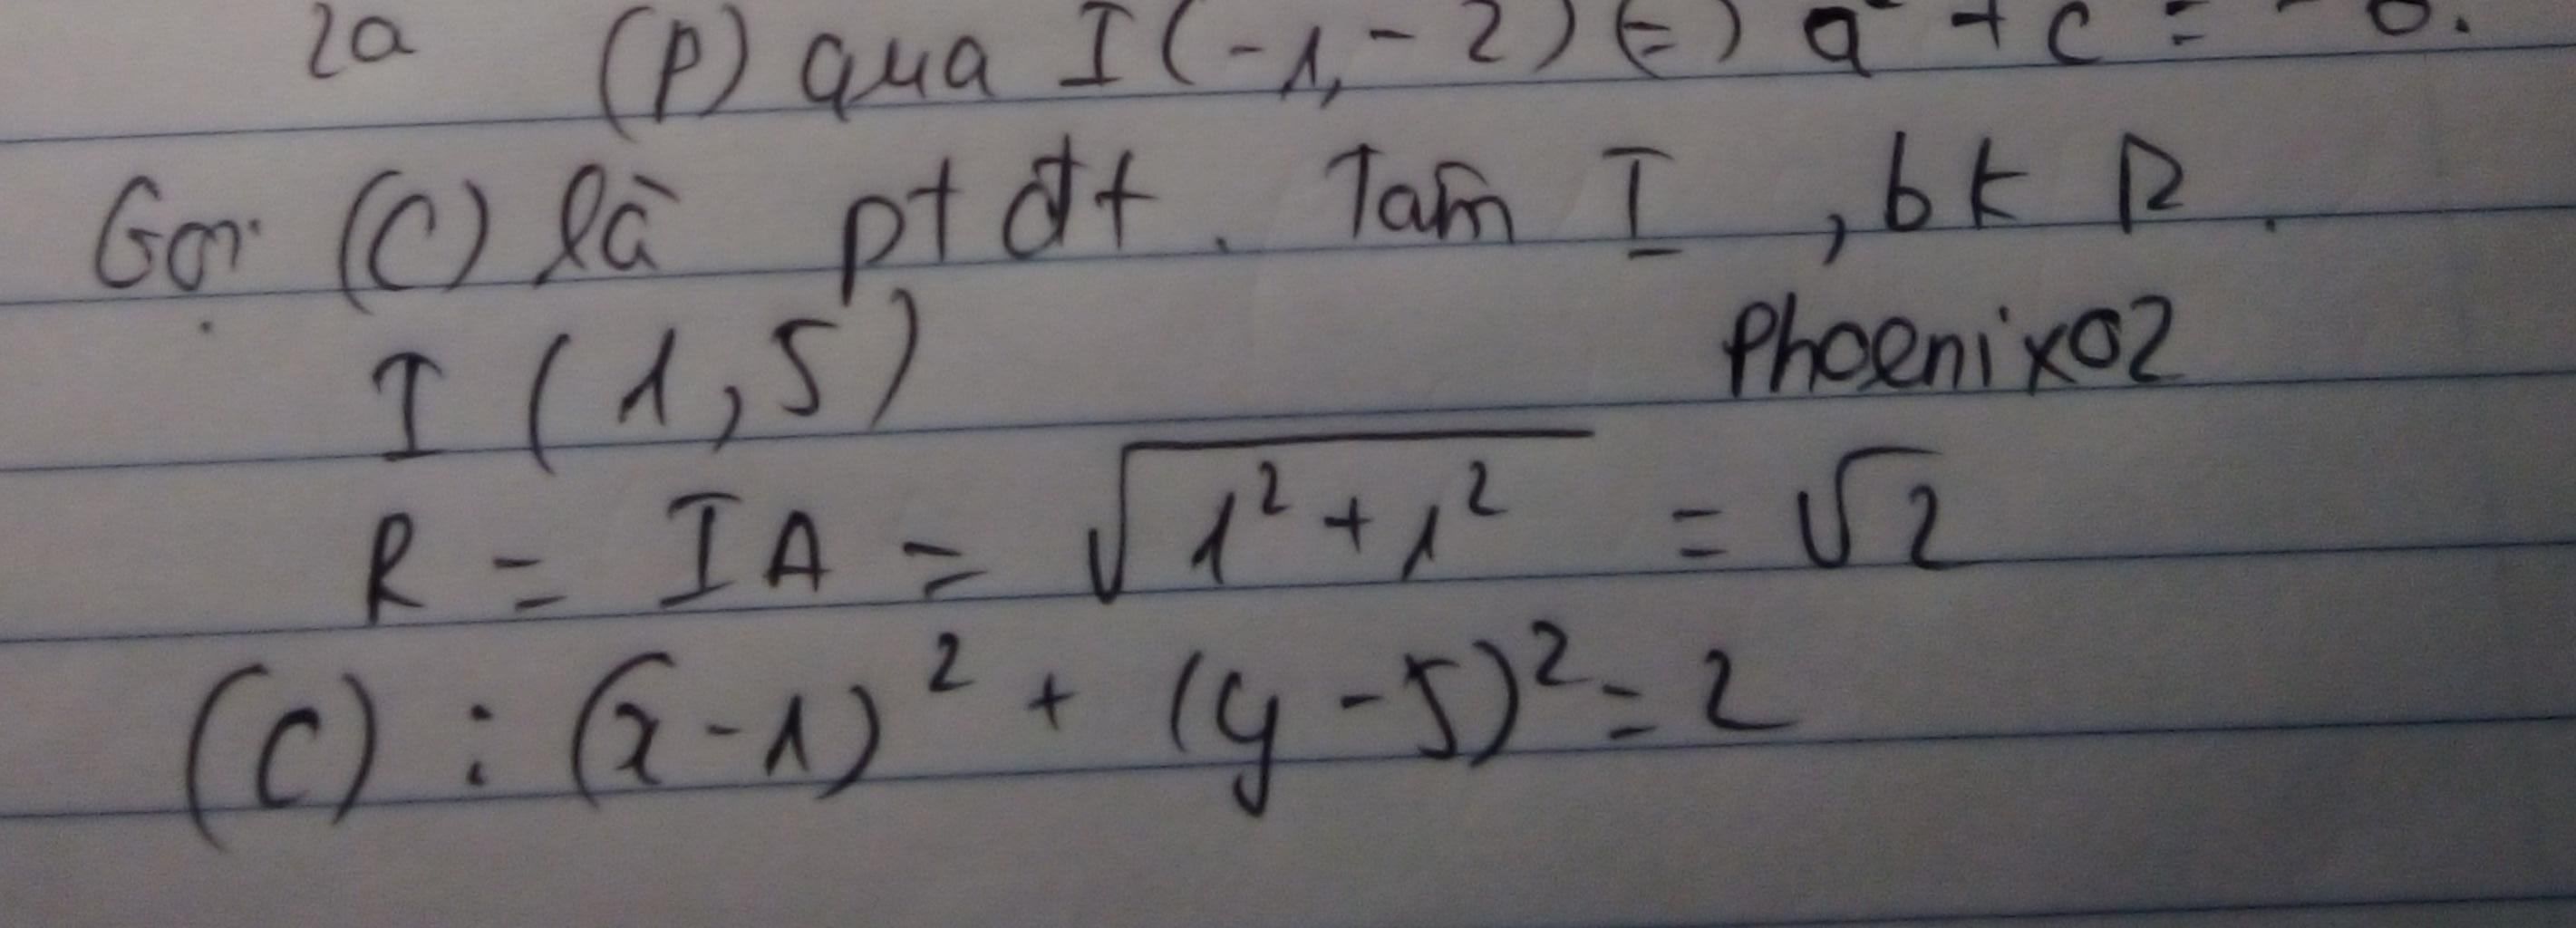 2a (P) qua I(-1,-2) (=) a + c = -6.
Gọi (C) là pt đt. Tâm I, bk R.
I (1,5)
Phoenix02
R = IA = √(1² + 1²) = √2
(C) : (x-1)² + (y-5)² = 2